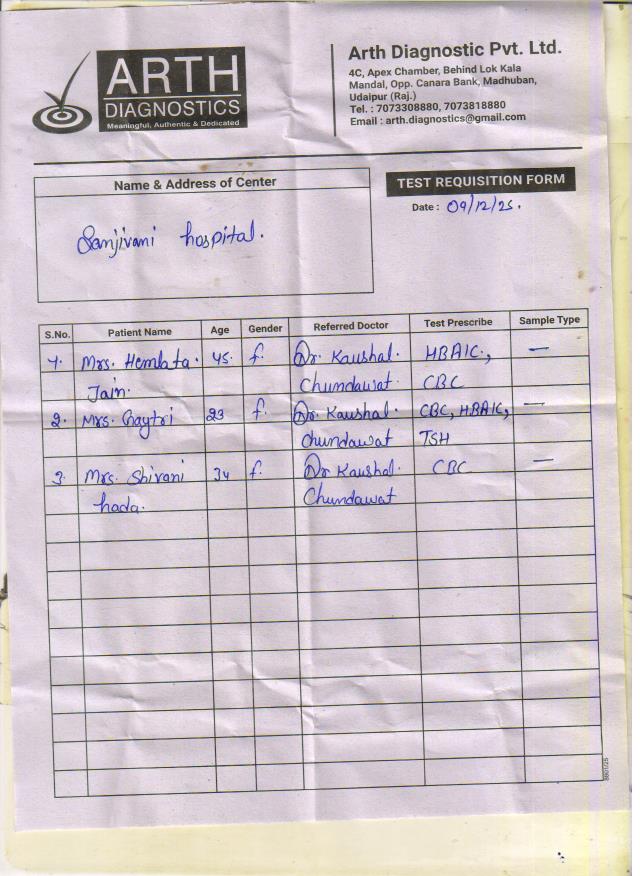 ARTH
DIAGNOSTICS
Meaningful, Authentic & Dedicated
Arth Diagnostic Pvt. Ltd.
4C, Apex Chamber, Behind Lok Kala
Mandal, Opp. Canara Bank, Madhuban,
Udaipur (Raj.)
Tel. : 7073308880, 7073818880
Email : arth.diagnostics@gmail.com
Name & Address of Center
Sanjivani hospital.
TEST REQUISITION FORM
Date : 09/12/25.
S.No. Patient Name Age Gender Referred Doctor Test Prescribe Sample Type
1. Mrs. Hemlata. 45. f. Dr. Kaushal. HBA1C., —
Jain. Chundawat. CBC
2. Mrs. Gaytri 23 f. Dr. Kaushal. CBC, HBA1C, —
chundawat TSH
3. Mrs. Shivani 34 f. Dr Kaushal. CBC —
hada. Chundawat